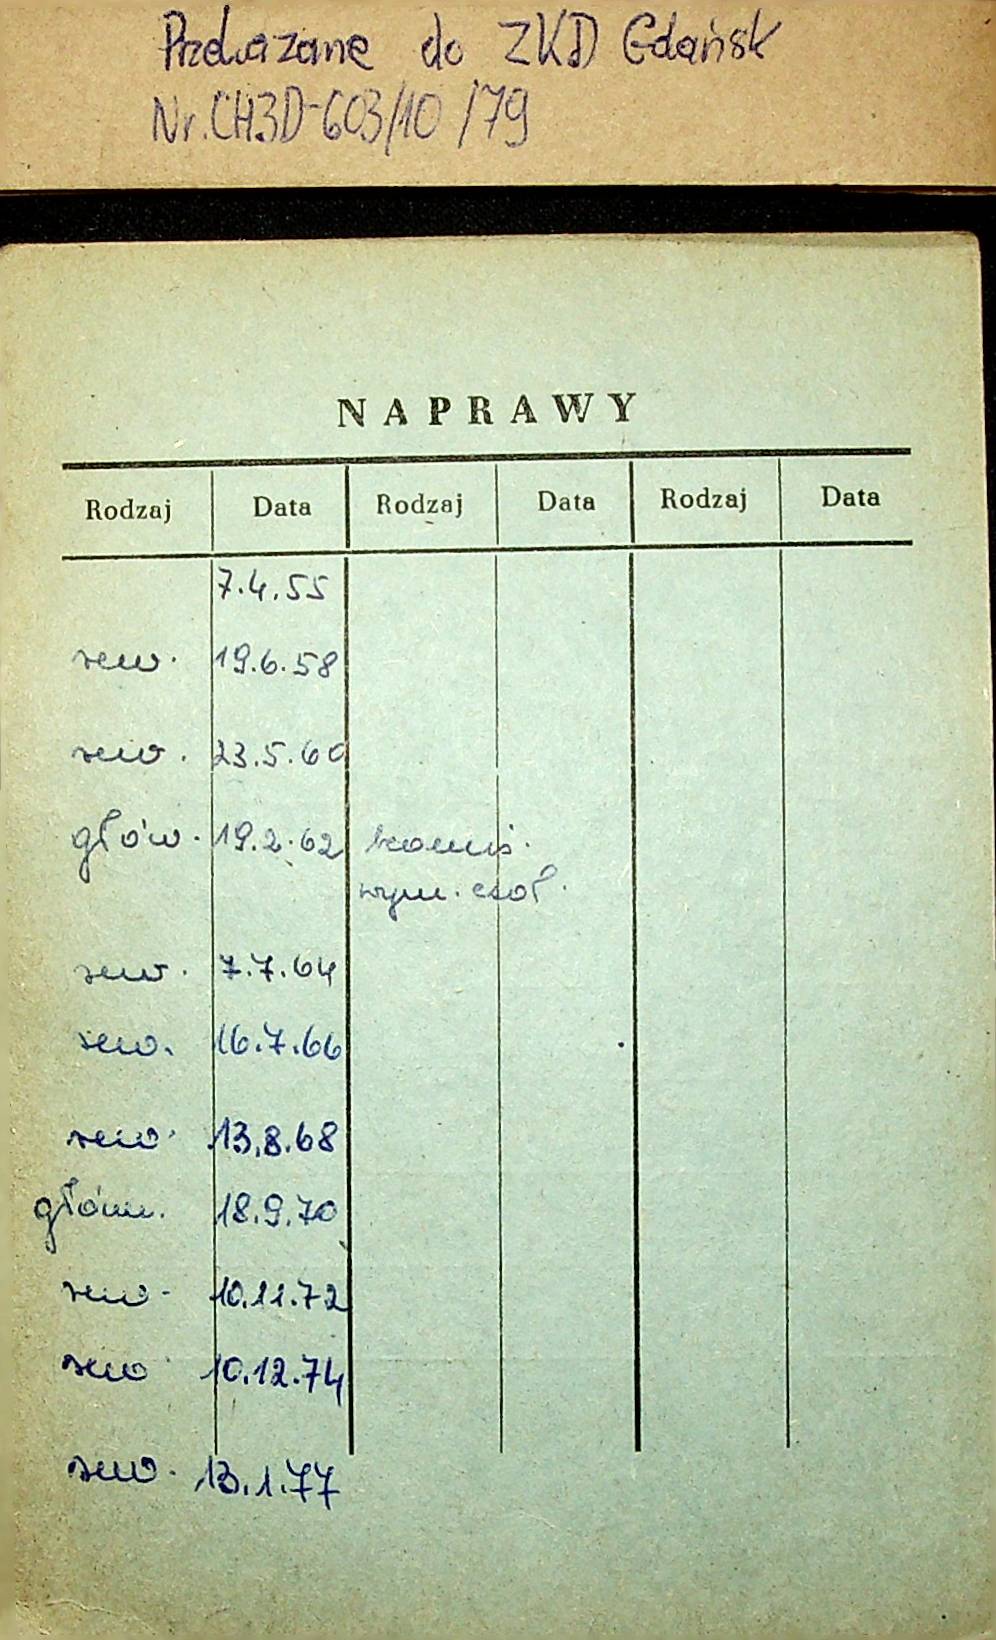 Przekazane do ZKD Gdańsk
Nr.CH3D-603/10/79
NAPRAWY
Rodzaj Data Rodzaj Data Rodzaj Data
7.4.55
rew. 19.6.58
rew. 23.5.60
głów. 19.2.62
wym. czoł.
rew. 7.7.64
rew. 16.7.66
rew. 13.8.68
główn. 18.9.70
rew. 10.11.72
rew 10.12.74
rew. 13.1.77